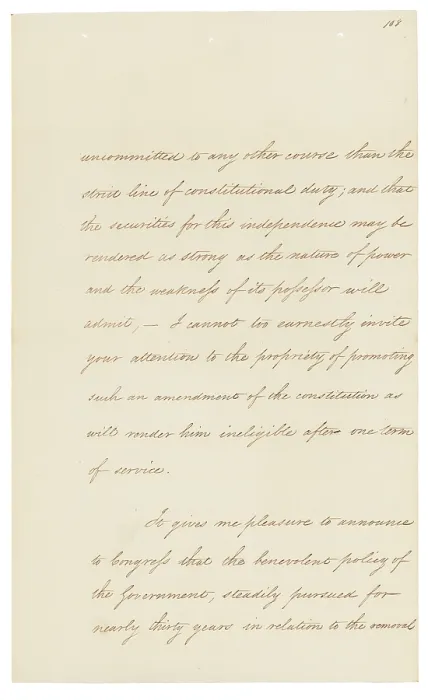 168
uncommitted to any other course than the
strict line of constitutional duty; and that
the securities for this independence may be
rendered as strong as the nature of power
and the weakness of its possessor will
admit, — I cannot too earnestly invite
your attention to the propriety of promoting
such an amendment of the constitution as
will render him ineligible after one term
of service.
It gives me pleasure to announce
to Congress that the benevolent policy of
the Government, steadily pursued for
nearly thirty years in relation to the removal